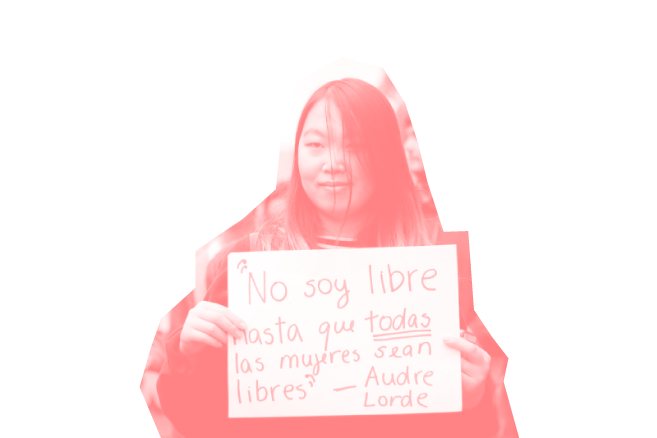 "No soy libre
hasta que todas
las mujeres sean
libres" — Audre
Lorde